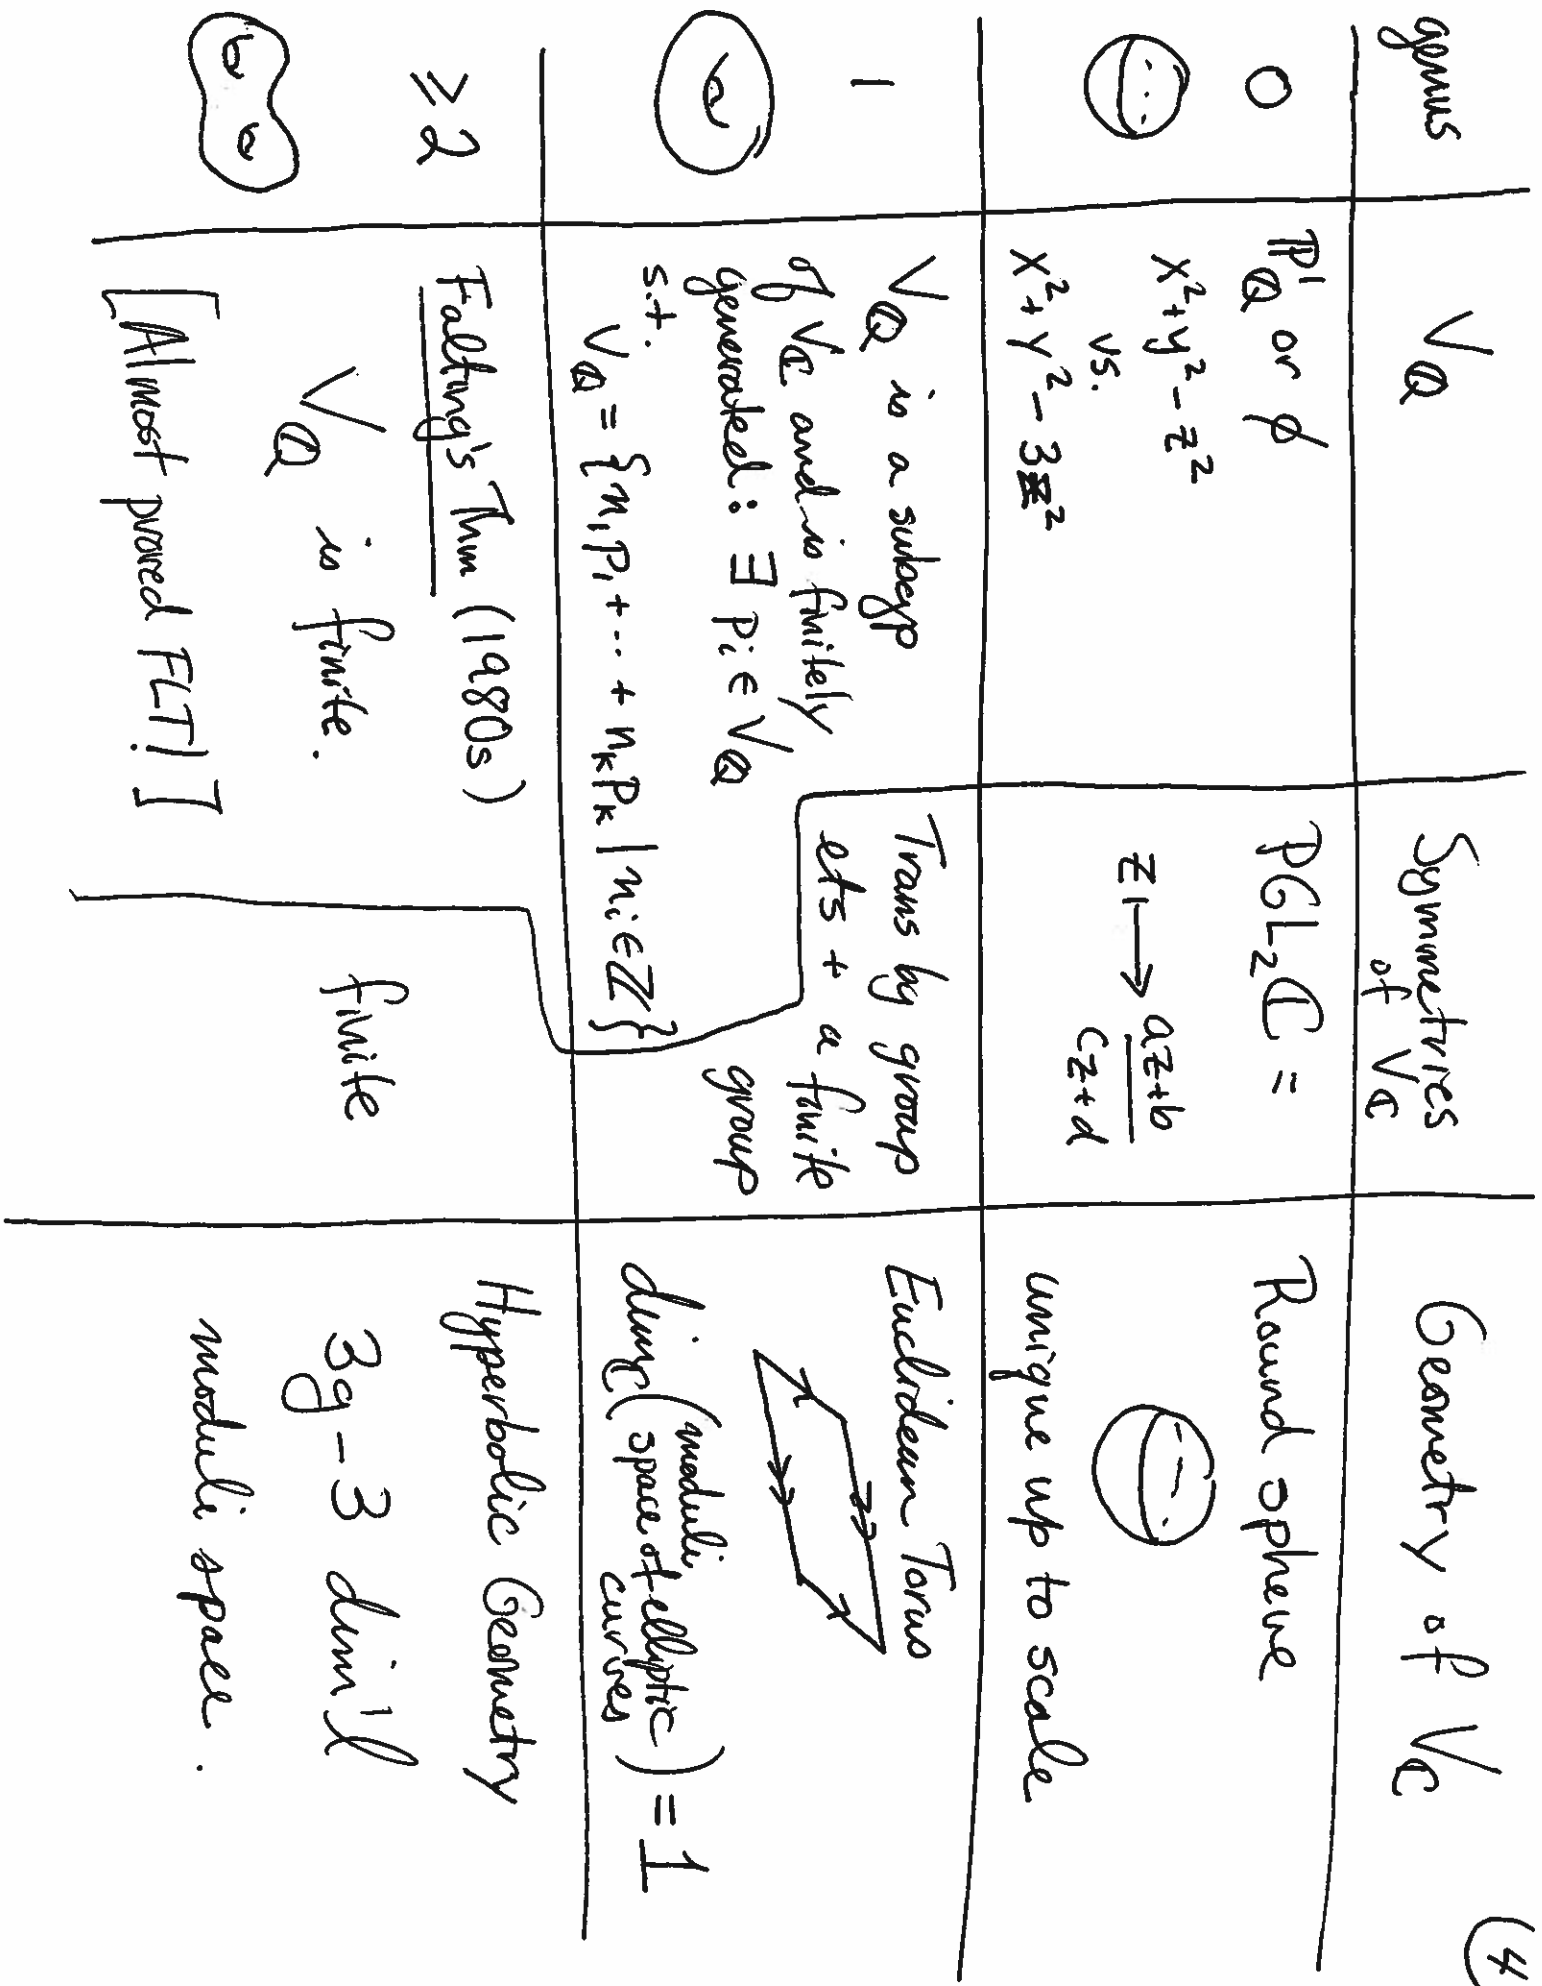 (4
genus
V_ℚ
Symmetries
of V_ℂ
Geometry of V_ℂ
0
ℙ¹_ℚ or ∅
x² + y² - z²
vs.
x² + y² - 3z²
PGL₂ℂ =
z ↦ az+b
cz+d
Round sphere
unique up to scale
1
V_ℚ is a subgp
of V_ℂ and is finitely
generated: ∃ p_i ∈ V_ℚ
s.t.
V_ℚ = {n₁p₁ + ... + n_k p_k | n_i ∈ ℤ}
Trans by group
elts + a finite
group
Euclidean Torus
dim_ℂ (moduli
space of elliptic
curves) = 1
≥ 2
Falting's Thm (1980s)
V_ℚ is finite.
[Almost proved FLT!]
finite
Hyperbolic Geometry
3g - 3 dim'l
moduli space.